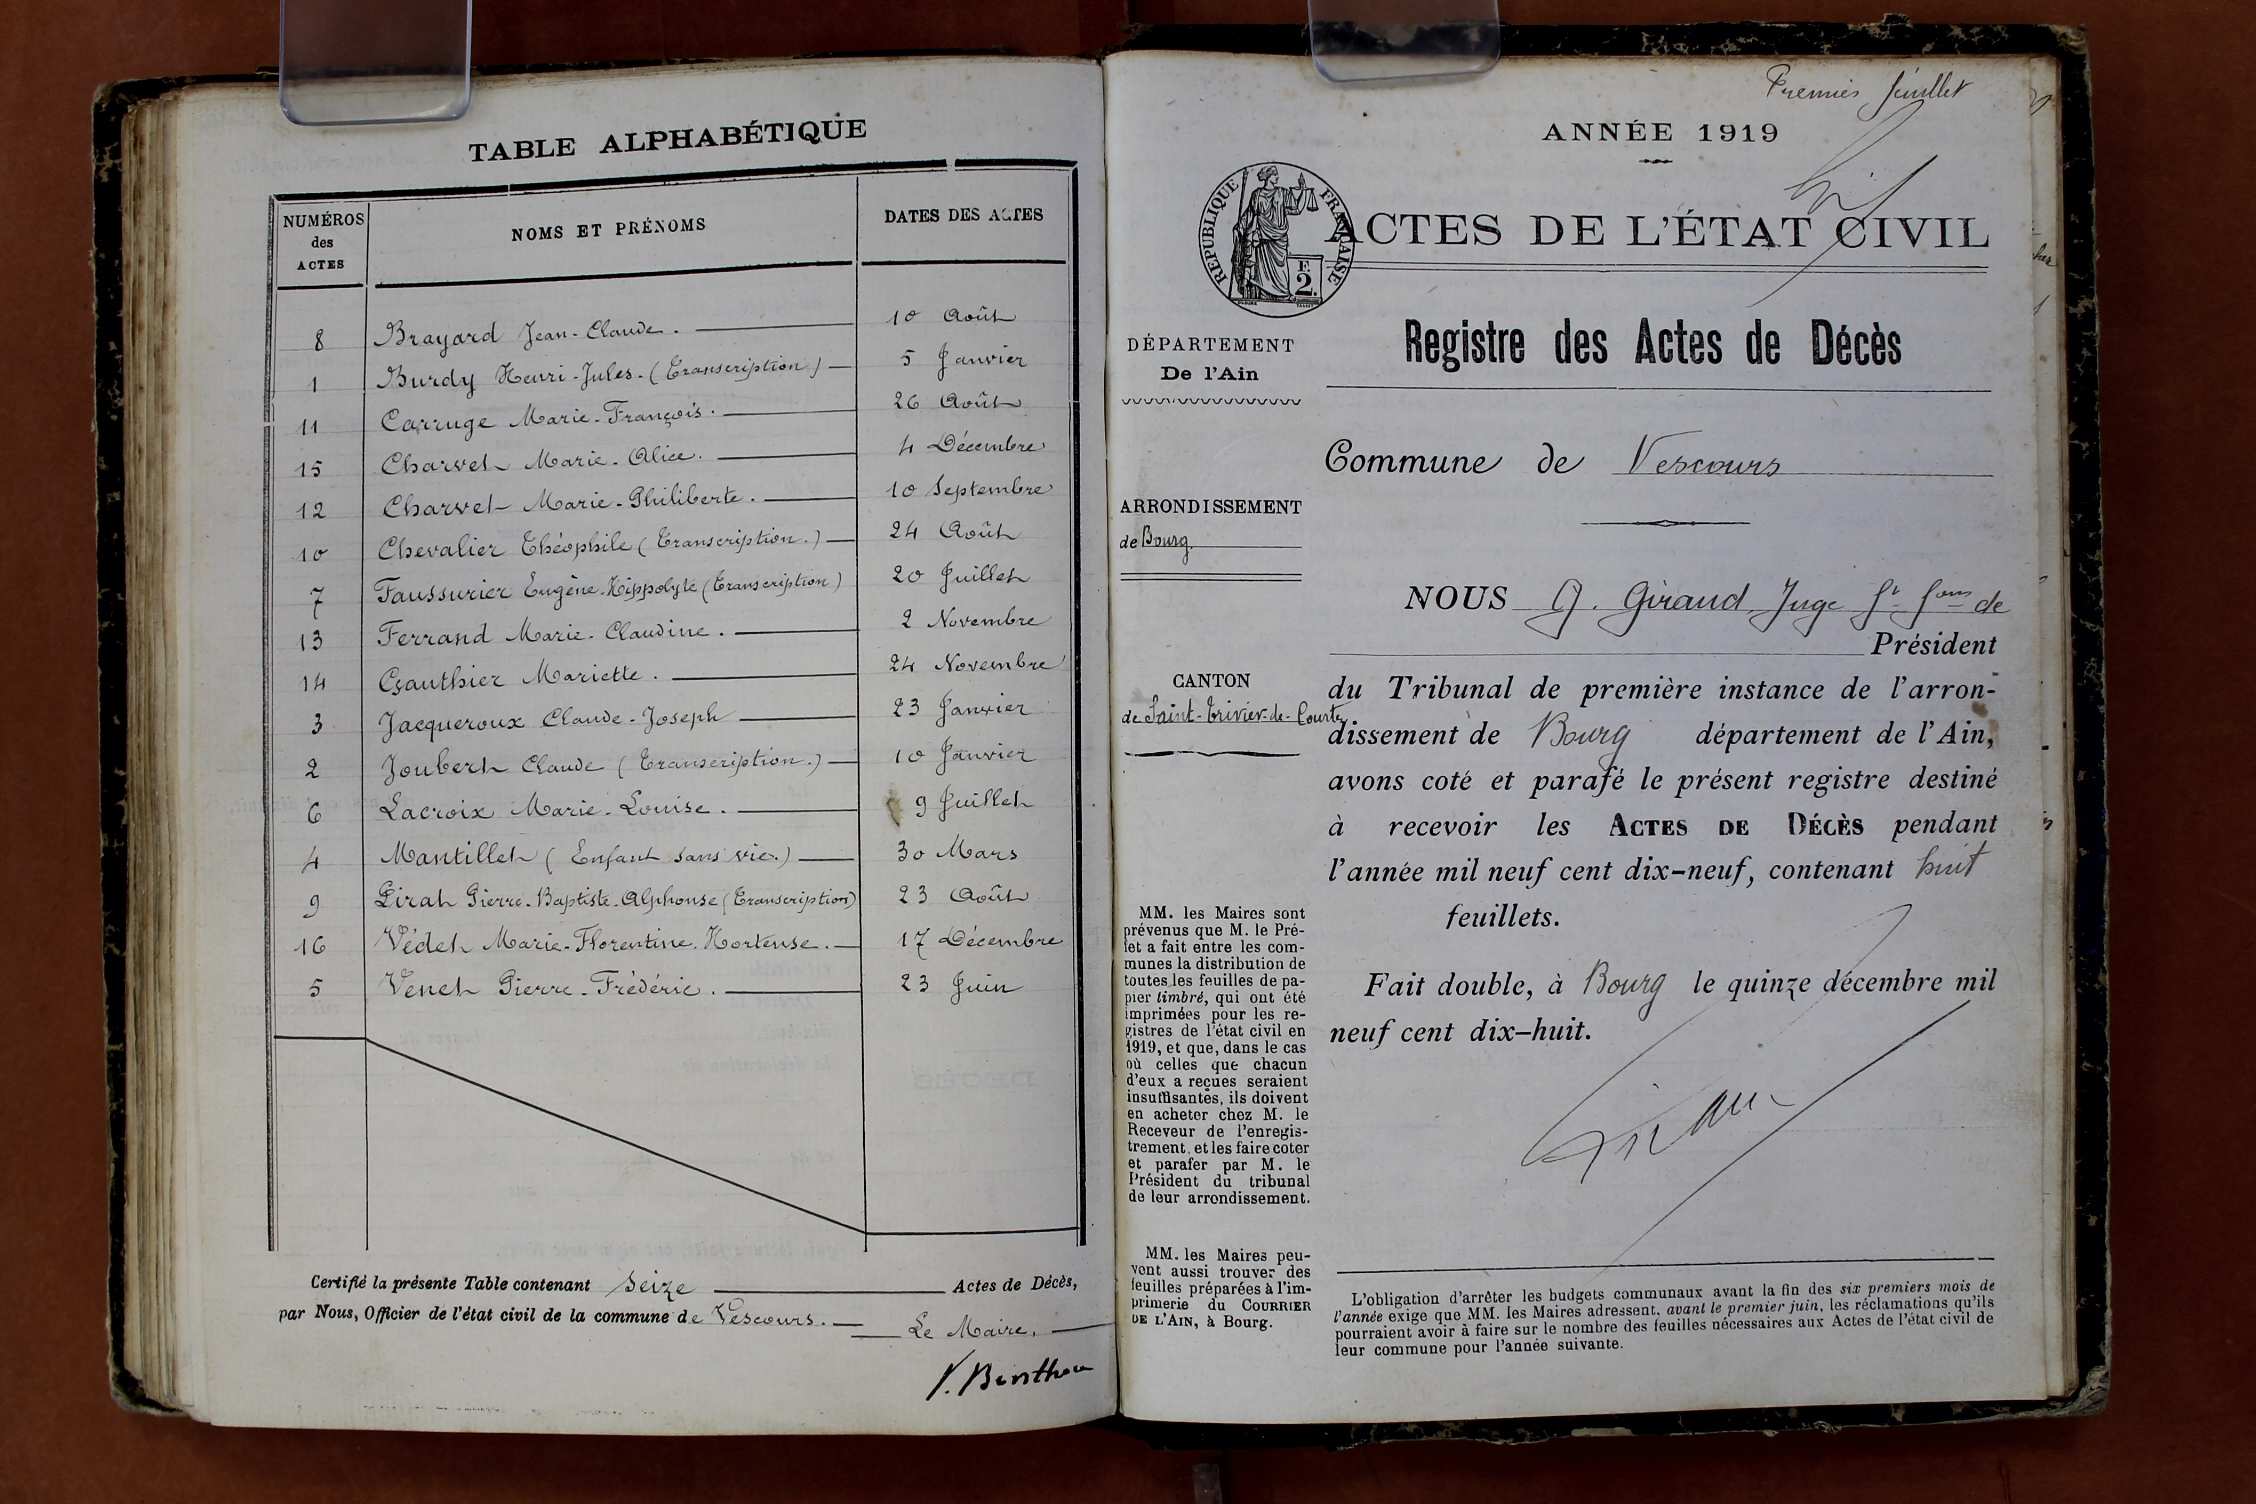 TABLE ALPHABÉTIQUE
NUMÉROS des ACTES
NOMS ET PRÉNOMS
DATES DES ACTES
8 Brayard Jean-Claude. 10 Août
1 Burdy Henri-Jules-(Transcription) 5 Janvier
11 Carruge Marie-François. 26 Août
15 Charvet Marie-Alice. 4 Décembre
12 Charvet Marie-Philiberte. 10 Septembre
10 Chevalier Théophile (Transcription.) 24 Août
7 Faussurier Eugène-Hippolyte (Transcription) 20 Juillet
13 Ferrand Marie-Claudine. 2 Novembre
14 Gauthier Mariette. 24 Novembre
3 Jacqueroux Claude-Joseph 23 Janvier
2 Joubert Claude (Transcription.) 10 Janvier
6 Lacroix Marie-Louise. 9 Juillet
4 Mantillet (Enfant sans vie.) 30 Mars
9 Pirat Pierre-Baptiste-Alphonse (Transcription) 23 Août
16 Védet Marie-Florentine-Hortense. 17 Décembre
5 Venet Pierre-Frédéric. 23 Juin
Certifié la présente Table contenant Seize Actes de Décès,
par Nous, Officier de l'état civil de la commune de Vescours.
Le Maire,
Premier feuillet
ANNÉE 1919
RÉPUBLIQUE FRANÇAISE
F. 2.
ACTES DE L'ÉTAT CIVIL
Registre des Actes de Décès
DÉPARTEMENT
De l'Ain
Commune de Vescours
ARRONDISSEMENT
de Bourg
CANTON
de Saint-Trivier-de-Courtes
NOUS G. Giraud Juge ft fons de
Président
du Tribunal de première instance de l'arron-
dissement de Bourg département de l'Ain,
avons coté et parafé le présent registre destiné
à recevoir les ACTES DE DÉCÈS pendant
l'année mil neuf cent dix-neuf, contenant huit
feuillets.
Fait double, à Bourg le quinze décembre mil
neuf cent dix-huit.
MM. les Maires sont
prévenus que M. le Pré-
fet a fait entre les com-
munes la distribution de
toutes les feuilles de pa-
pier timbré, qui ont été
imprimées pour les re-
gistres de l'état civil en
1919, et que, dans le cas
où celles que chacun
d'eux a reçues seraient
insuffisantes, ils doivent
en acheter chez M. le
Receveur de l'enregis-
trement, et les faire coter
et parafer par M. le
Président du tribunal
de leur arrondissement.
MM. les Maires peu-
vent aussi trouver des
feuilles préparées à l'im-
primerie du COURRIER
DE L'AIN, à Bourg.
L'obligation d'arrêter les budgets communaux avant la fin des six premiers mois de
l'année exige que MM. les Maires adressent, avant le premier juin, les réclamations qu'ils
pourraient avoir à faire sur le nombre des feuilles nécessaires aux Actes de l'état civil de
leur commune pour l'année suivante.